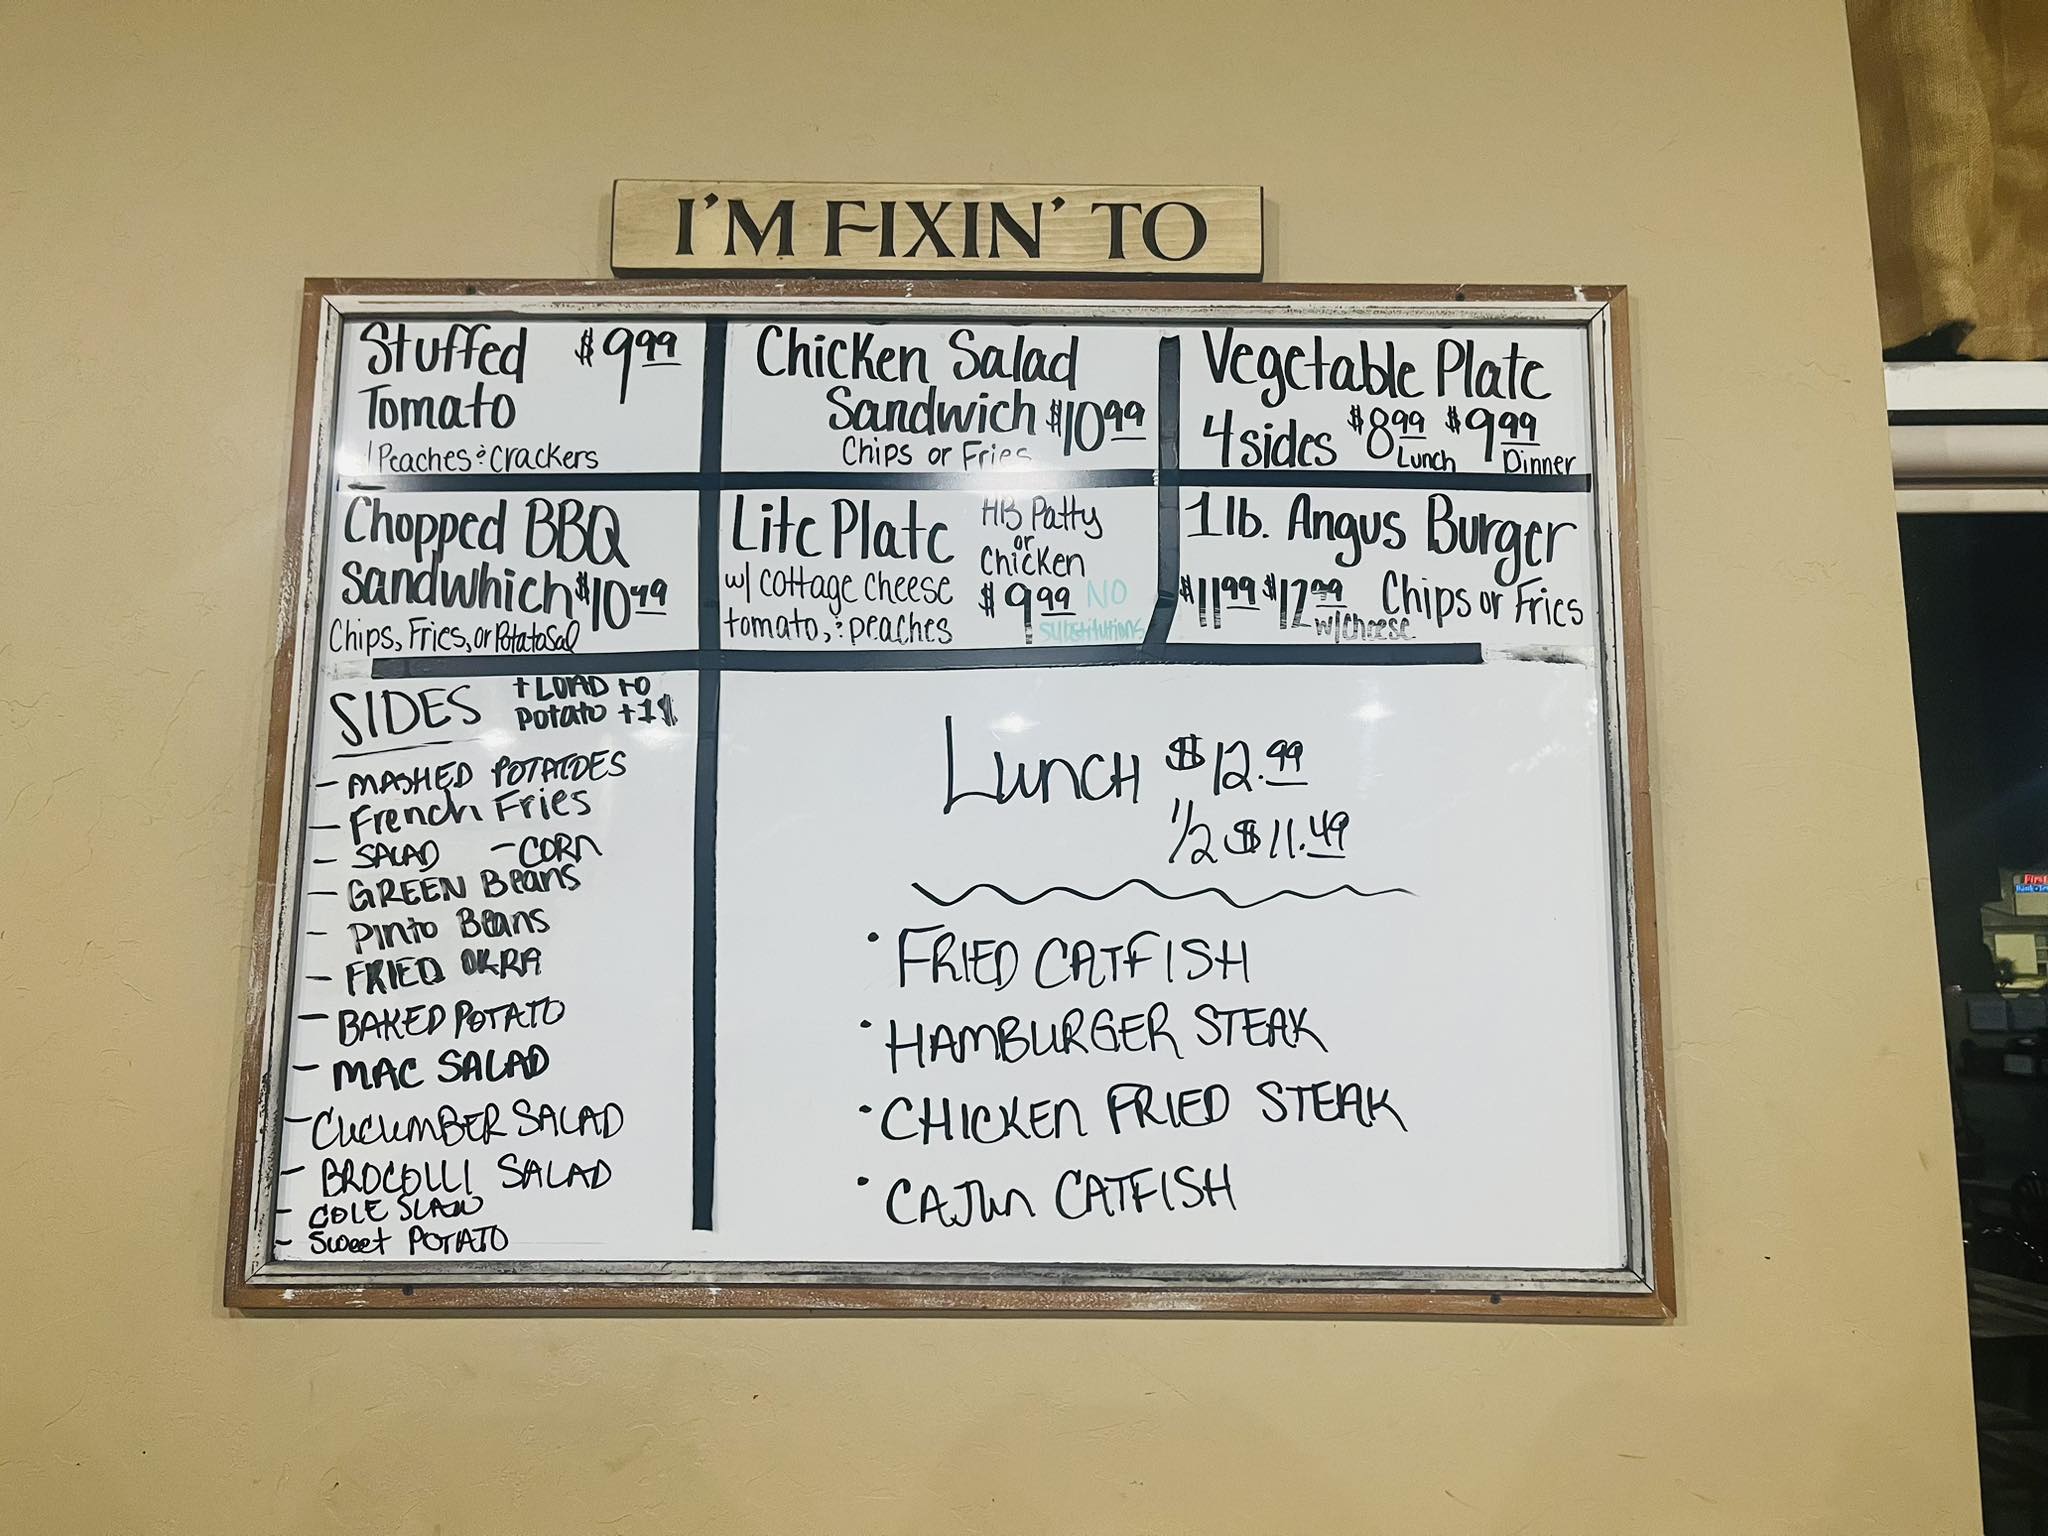 I'M FIXIN' TO
Stuffed $9.99
Tomato
/Peaches & Crackers
Chicken Salad
Sandwich $10.99
Chips or Fries
Vegetable Plate
4 sides $8.99 $9.99
Lunch Dinner
Chopped BBQ
Sandwhich $10.49
Chips, Fries, or Potato Sal
Lite Plate
w/ cottage cheese
tomato, & peaches
HB Patty
or
Chicken
$9.99 NO
substitutions
1 lb. Angus Burger
$11.99 $12.99 Chips or Fries
w/cheese
SIDES
+ LOAD to
Potato +1$
- MASHED POTATOES
- French Fries
- SALAD - CORN
- GREEN Beans
- Pinto Beans
- FRIED OKRA
- BAKED POTATO
- MAC SALAD
- CUCUMBER SALAD
- BROCOLLI SALAD
- COLE SLAW
- Sweet POTATO
Lunch $12.99
1/2 $11.49
• FRIED CATFISH
• HAMBURGER STEAK
• CHICKEN FRIED STEAK
• CAJUN CATFISH
First